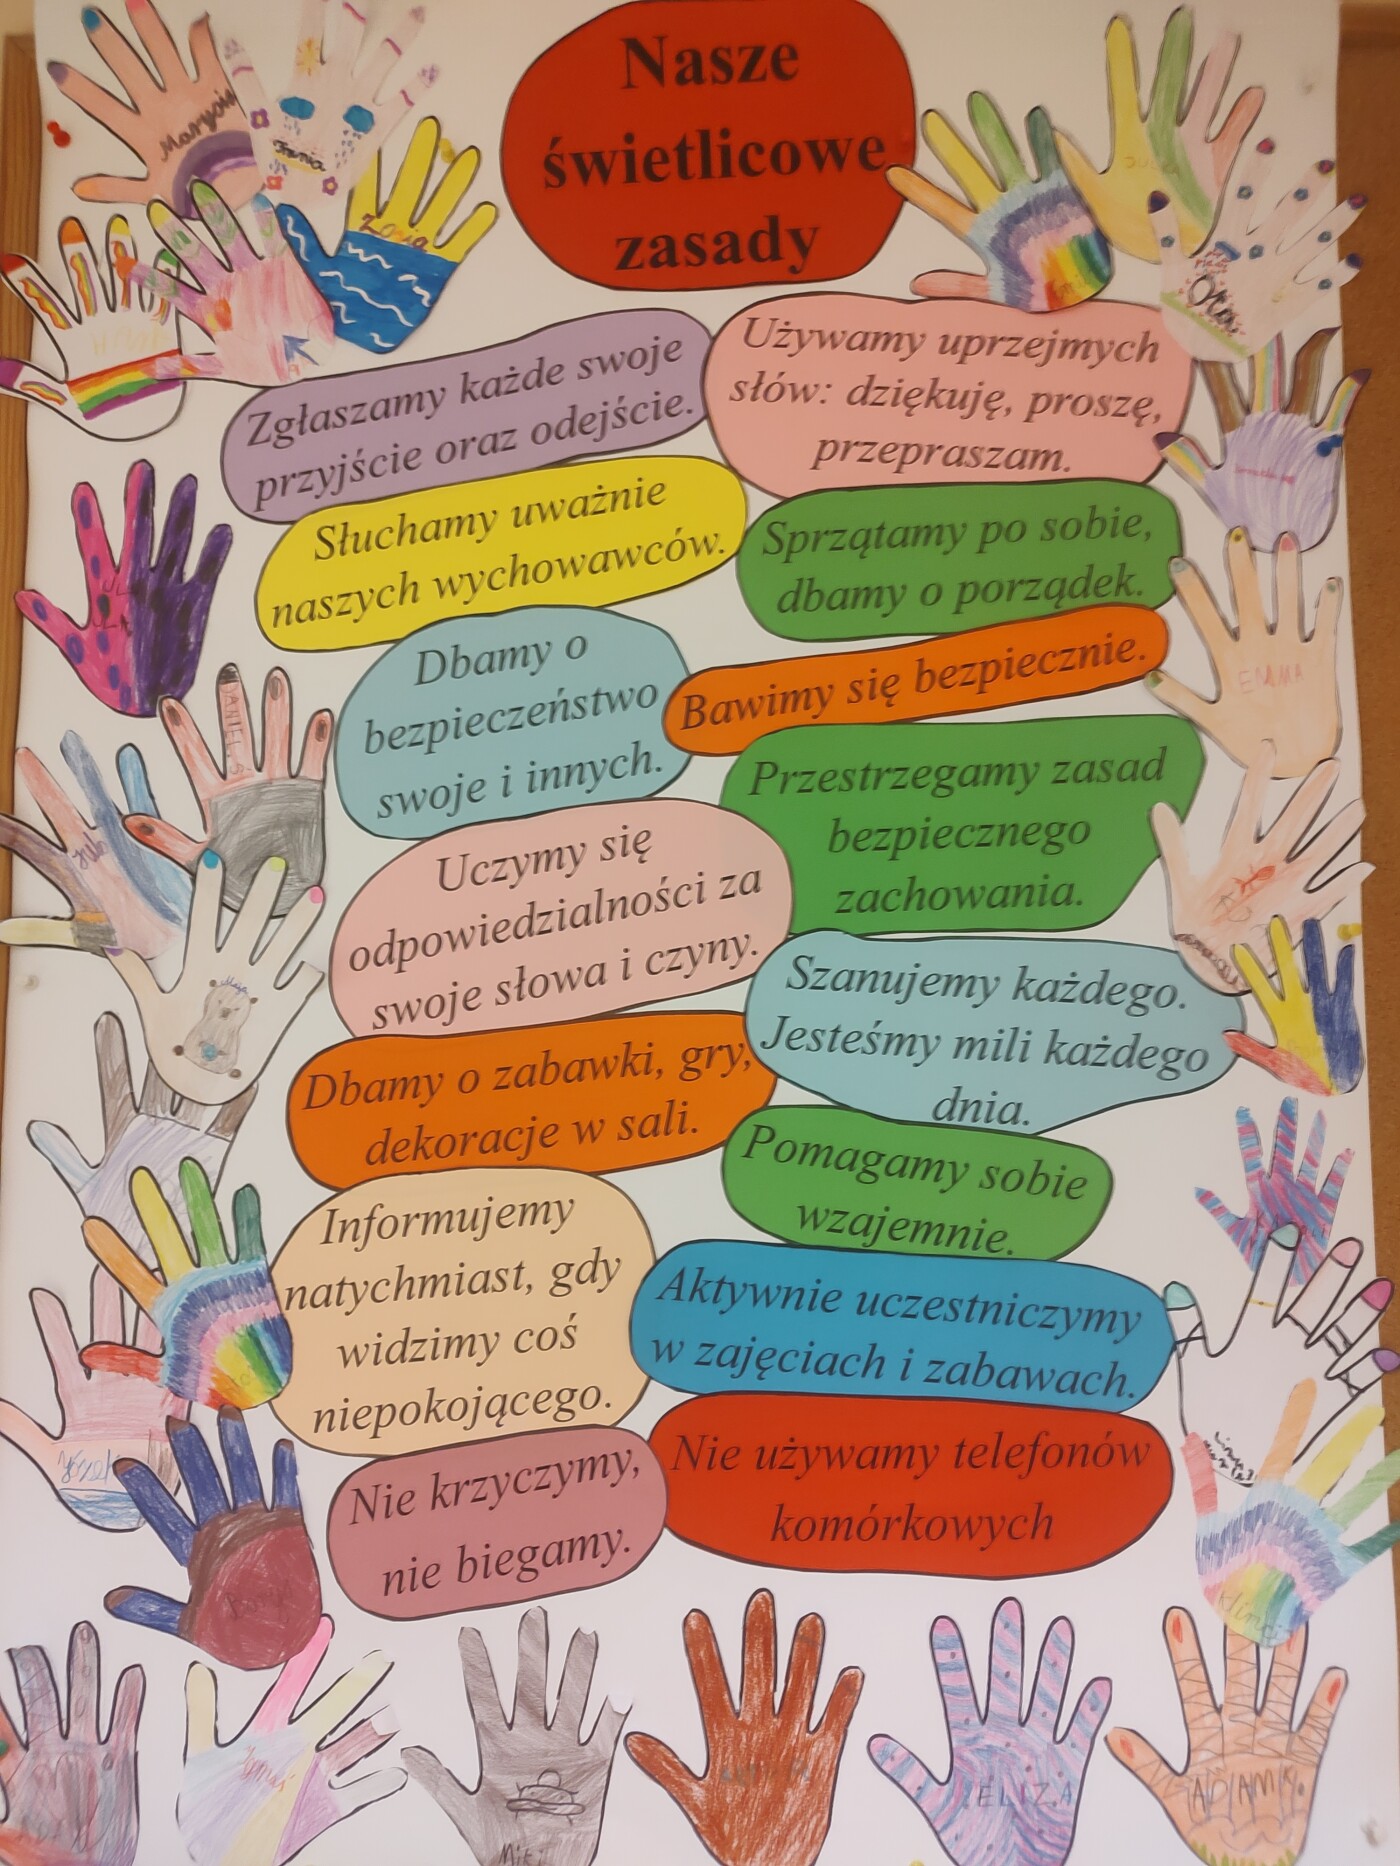 Nasze
świetlicowe
zasady
Marysia
Zosia
Zgłaszamy każde swoje
przyjście oraz odejście.
Używamy uprzejmych
słów: dziękuję, proszę,
przepraszam.
Słuchamy uważnie
naszych wychowawców.
Sprzątamy po sobie,
dbamy o porządek.
Dbamy o
bezpieczeństwo
swoje i innych.
Bawimy się bezpiecznie.
EMMA
DANIEL.S
Przestrzegamy zasad
bezpiecznego
zachowania.
Uczymy się
odpowiedzialności za
swoje słowa i czyny.
Szanujemy każdego.
Jesteśmy mili każdego
dnia.
Dbamy o zabawki, gry,
dekoracje w sali.
Pomagamy sobie
wzajemnie.
Informujemy
natychmiast, gdy
widzimy coś
niepokojącego.
Aktywnie uczestniczymy
w zajęciach i zabawach.
Nie krzyczymy,
nie biegamy.
Nie używamy telefonów
komórkowych
Józef
ELIZA
ADAMK.